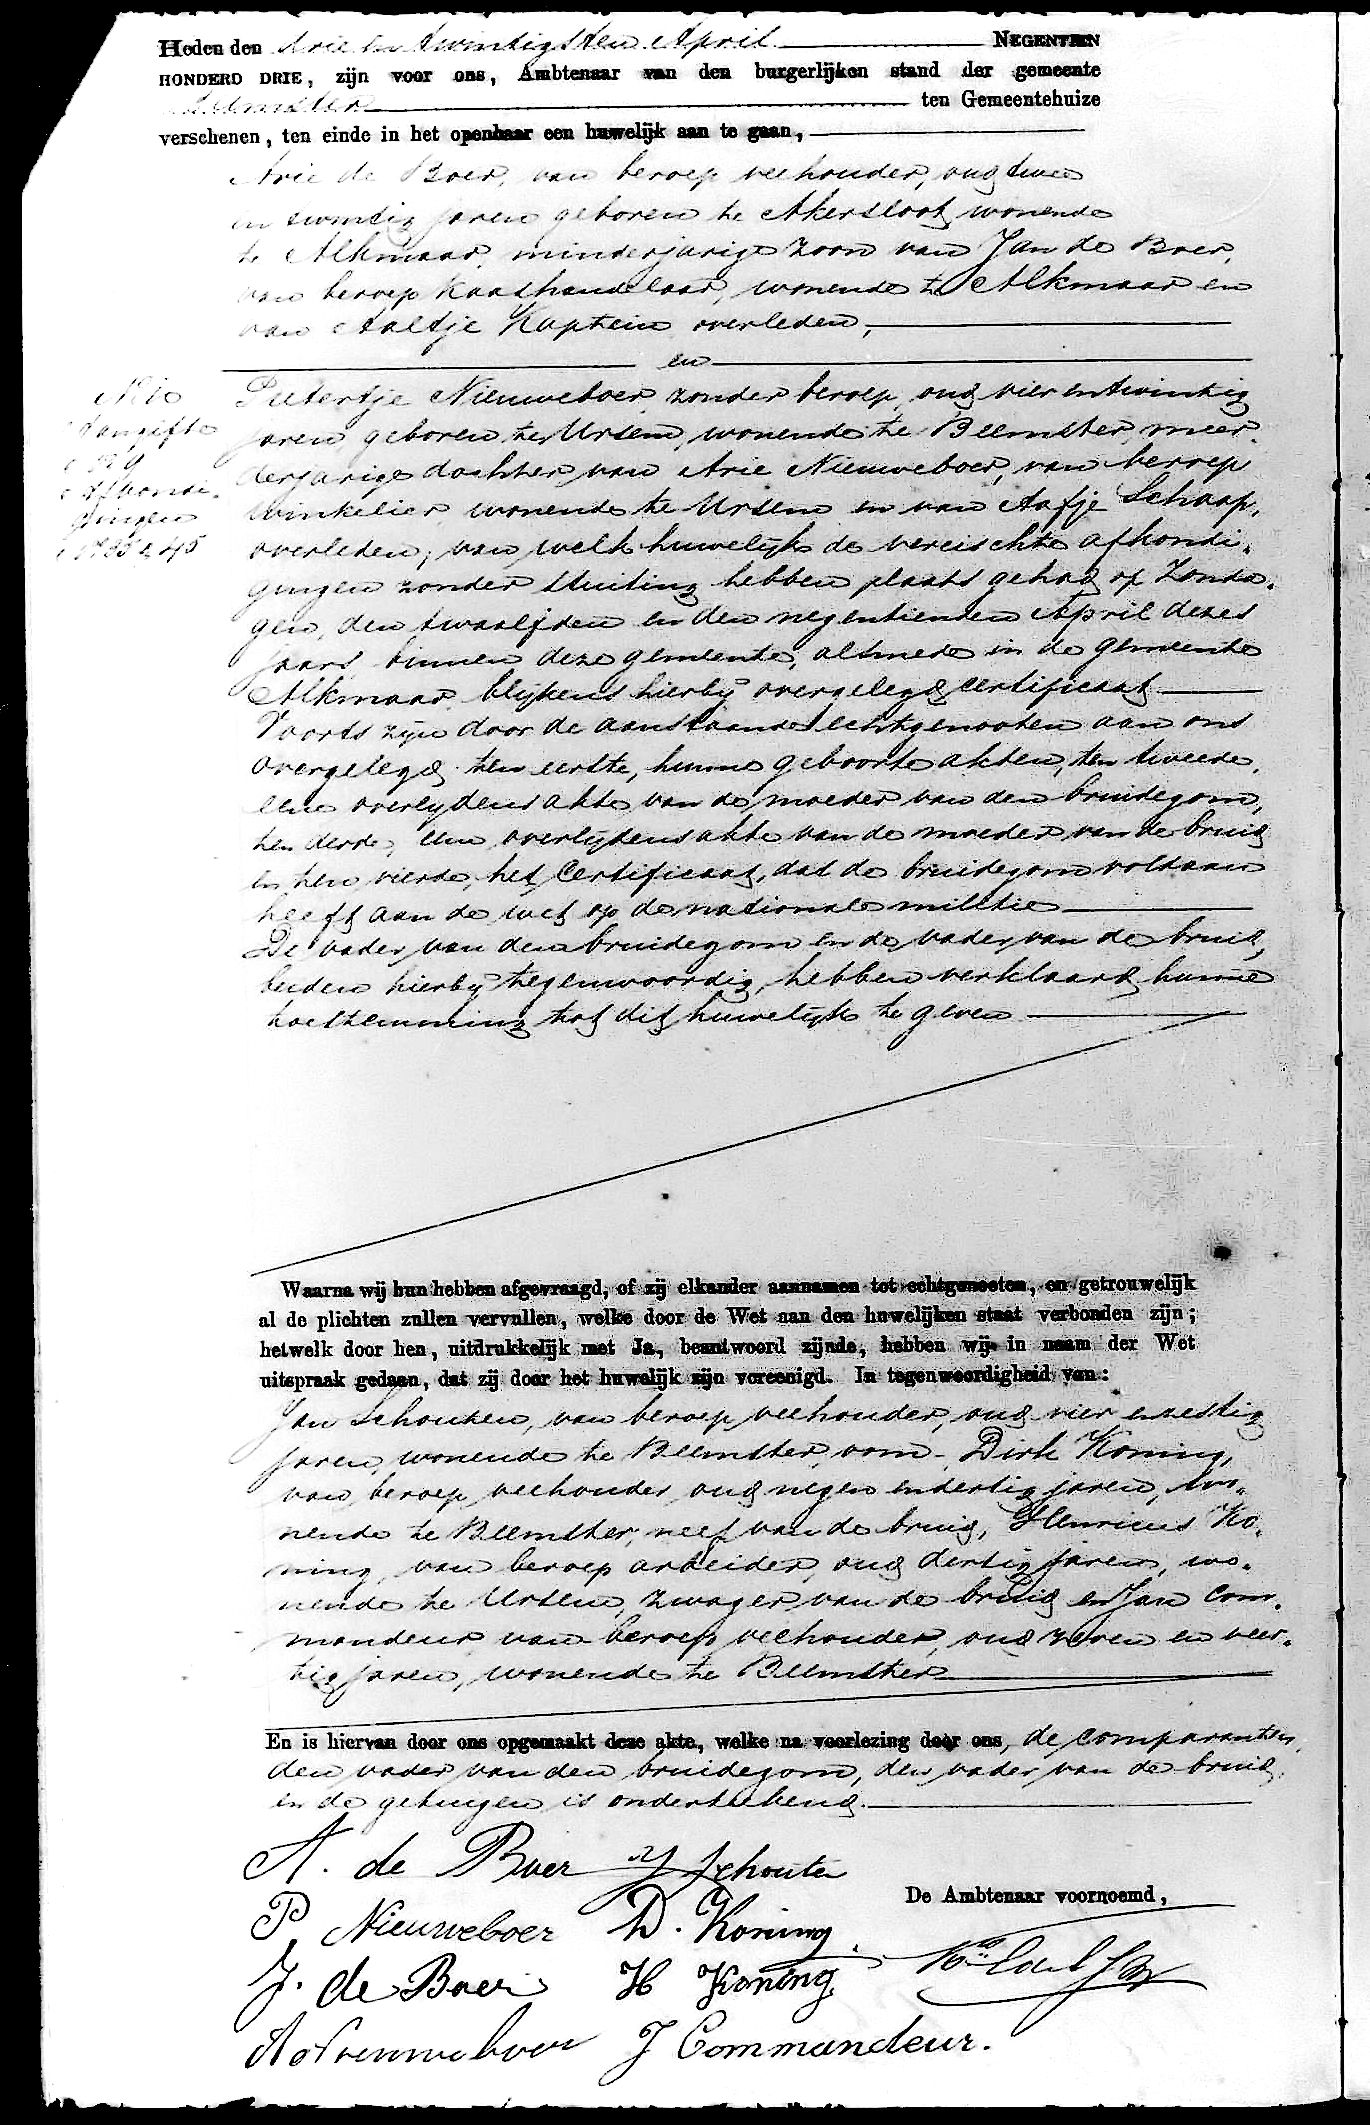 Heden den drie en twintigsten April NEGENTIEN
HONDERD DRIE, zijn voor ons, Ambtenaar van den burgerlijken stand der gemeente
Beemster ten Gemeentehuize
verschenen, ten einde in het openbaar een huwelijk aan te gaan,
Arie de Boer, van beroep veehouder, oud twee
en twintig jaren geboren te Akersloot, wonende
te Alkmaar, minderjarige zoon van Jan de Boer,
van beroep kaashandelaar, wonende te Alkmaar en
van Aaltje Kaptein overleden,
en
Pietertje Nieuweboer, zonder beroep, oud vier en twintig
jaren, geboren te Ursem, wonende te Beemster, meer-
derjarige dochter van Arie Nieuweboer, van beroep
winkelier, wonende te Ursem en van Aafje Schaap,
overleden; van welk huwelijk de vereischte afkondi-
gingen zonder stuiting hebben plaats gehad op Zonda-
gen, den twaalfden en den negentienden April dezes
jaars, binnen deze gemeente, alsmede in de gemeente
Alkmaar, blijkens hierbij overgelegd certificaat
Voorts zijn door de aanstaande echtgenooten aan ons
overgelegd ten eerste, hunne geboorte akten, ten tweede,
eene overlijdens akte van de moeder van den bruidegom,
ten derde, eene overlijdens akte van de moeder van de bruid
en ten vierde, het Certificaat, dat de bruidegom voldaan
heeft aan de wet op de nationale militie
De vader van den bruidegom en de vader van de bruid,
beiden hierbij tegenwoordig, hebben verklaard, hunne
toestemming tot dit huwelijk te geven
No 10
Aangifte
No 29
Afkondi-
gingen
No 33 & 45
Waarna wij hun hebben afgevraagd, of zij elkander aannamen tot echtgenooten, en getrouwelijk
al de plichten zullen vervullen, welke door de Wet aan den huwelijken staat verbonden zijn;
hetwelk door hen, uitdrukkelijk met Ja, beantwoord zijnde, hebben wij in naam der Wet
uitspraak gedaan, dat zij door het huwelijk zijn vereenigd. In tegenwoordigheid van:
Jan Schouten, van beroep veehouder, oud vier en zestig
jaren, wonende te Beemster, oom, Dirk Koning,
van beroep veehouder oud negen en dertig jaren, wo-
nende te Beemster, neef van de bruid, Henricus Ko-
ning, van beroep arbeider, oud dertig jaren, wo-
nende te Ursem, zwager van de bruid en Jan Com-
mandeur van beroep veehouder, oud zeven en veer-
tig jaren, wonende te Beemster
En is hiervan door ons opgemaakt deze akte, welke na voorlezing door ons, de comparanten,
den vader van den bruidegom, den vader van de bruid,
en de getuigen is onderteekend.
A. de Boer J Schouten
P Nieuweboer D. Koning
De Ambtenaar voornoemd,
J. de Boer H Koning
A Nieuweboer J Commandeur.